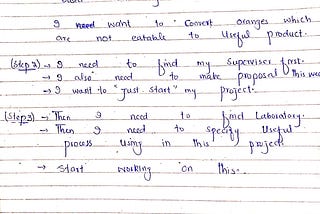 I need want to Convert oranges which
are not eatable to Useful product.
(Step 2) → I need to find my Superviser first.
→ I also need to make proposal this wee
→ I want to "Just start" my project.
(Step 3) → Then I need to find Laboratory.
→ Then I need to specify Useful
process using in this project
→ Start working on this.